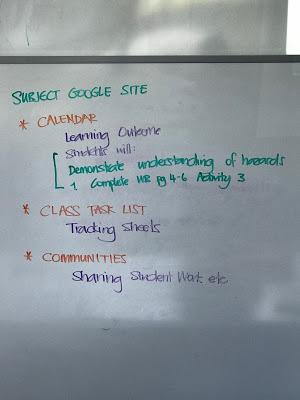 SUBJECT GOOGLE SITE
* CALENDAR
Learning Outcome
Students will:
Demonstrate understanding of hazards
1 Complete WB pg 4-6 Activity 3
* CLASS TASK LIST
Tracking Sheets
* COMMUNITIES
Sharing Student Work etc